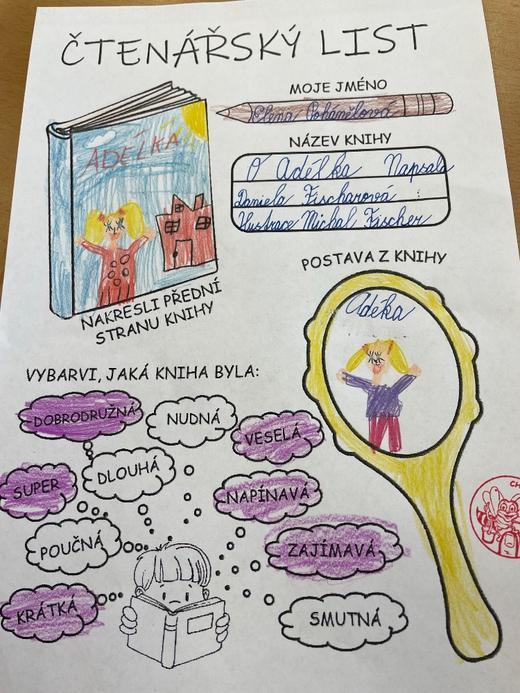 ČTENÁŘSKÝ LIST
MOJE JMÉNO
Elena Pohánělová
NÁZEV KNIHY
O Adélka Napsala
Daniela Fischarová
Ilustrace Michal Fischer
ADÉLKA
NAKRESLI PŘEDNÍ
STRANU KNIHY
POSTAVA Z KNIHY
Adéka
VYBARVI, JAKÁ KNIHA BYLA:
DOBRODRUŽNÁ
NUDNÁ
VESELÁ
SUPER
DLOUHÁ
NAPÍNAVÁ
POUČNÁ
ZAJÍMAVÁ
KRÁTKÁ
SMUTNÁ
CH